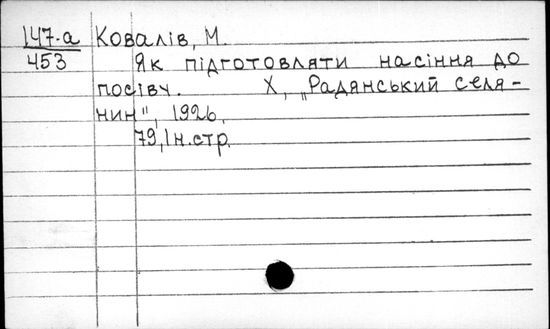 147-а Ковалів, М.
453 Як підготовляти насіння до
посіву. Х, „Радянський селя-
нин", 1926.
79, 1 н. стр.